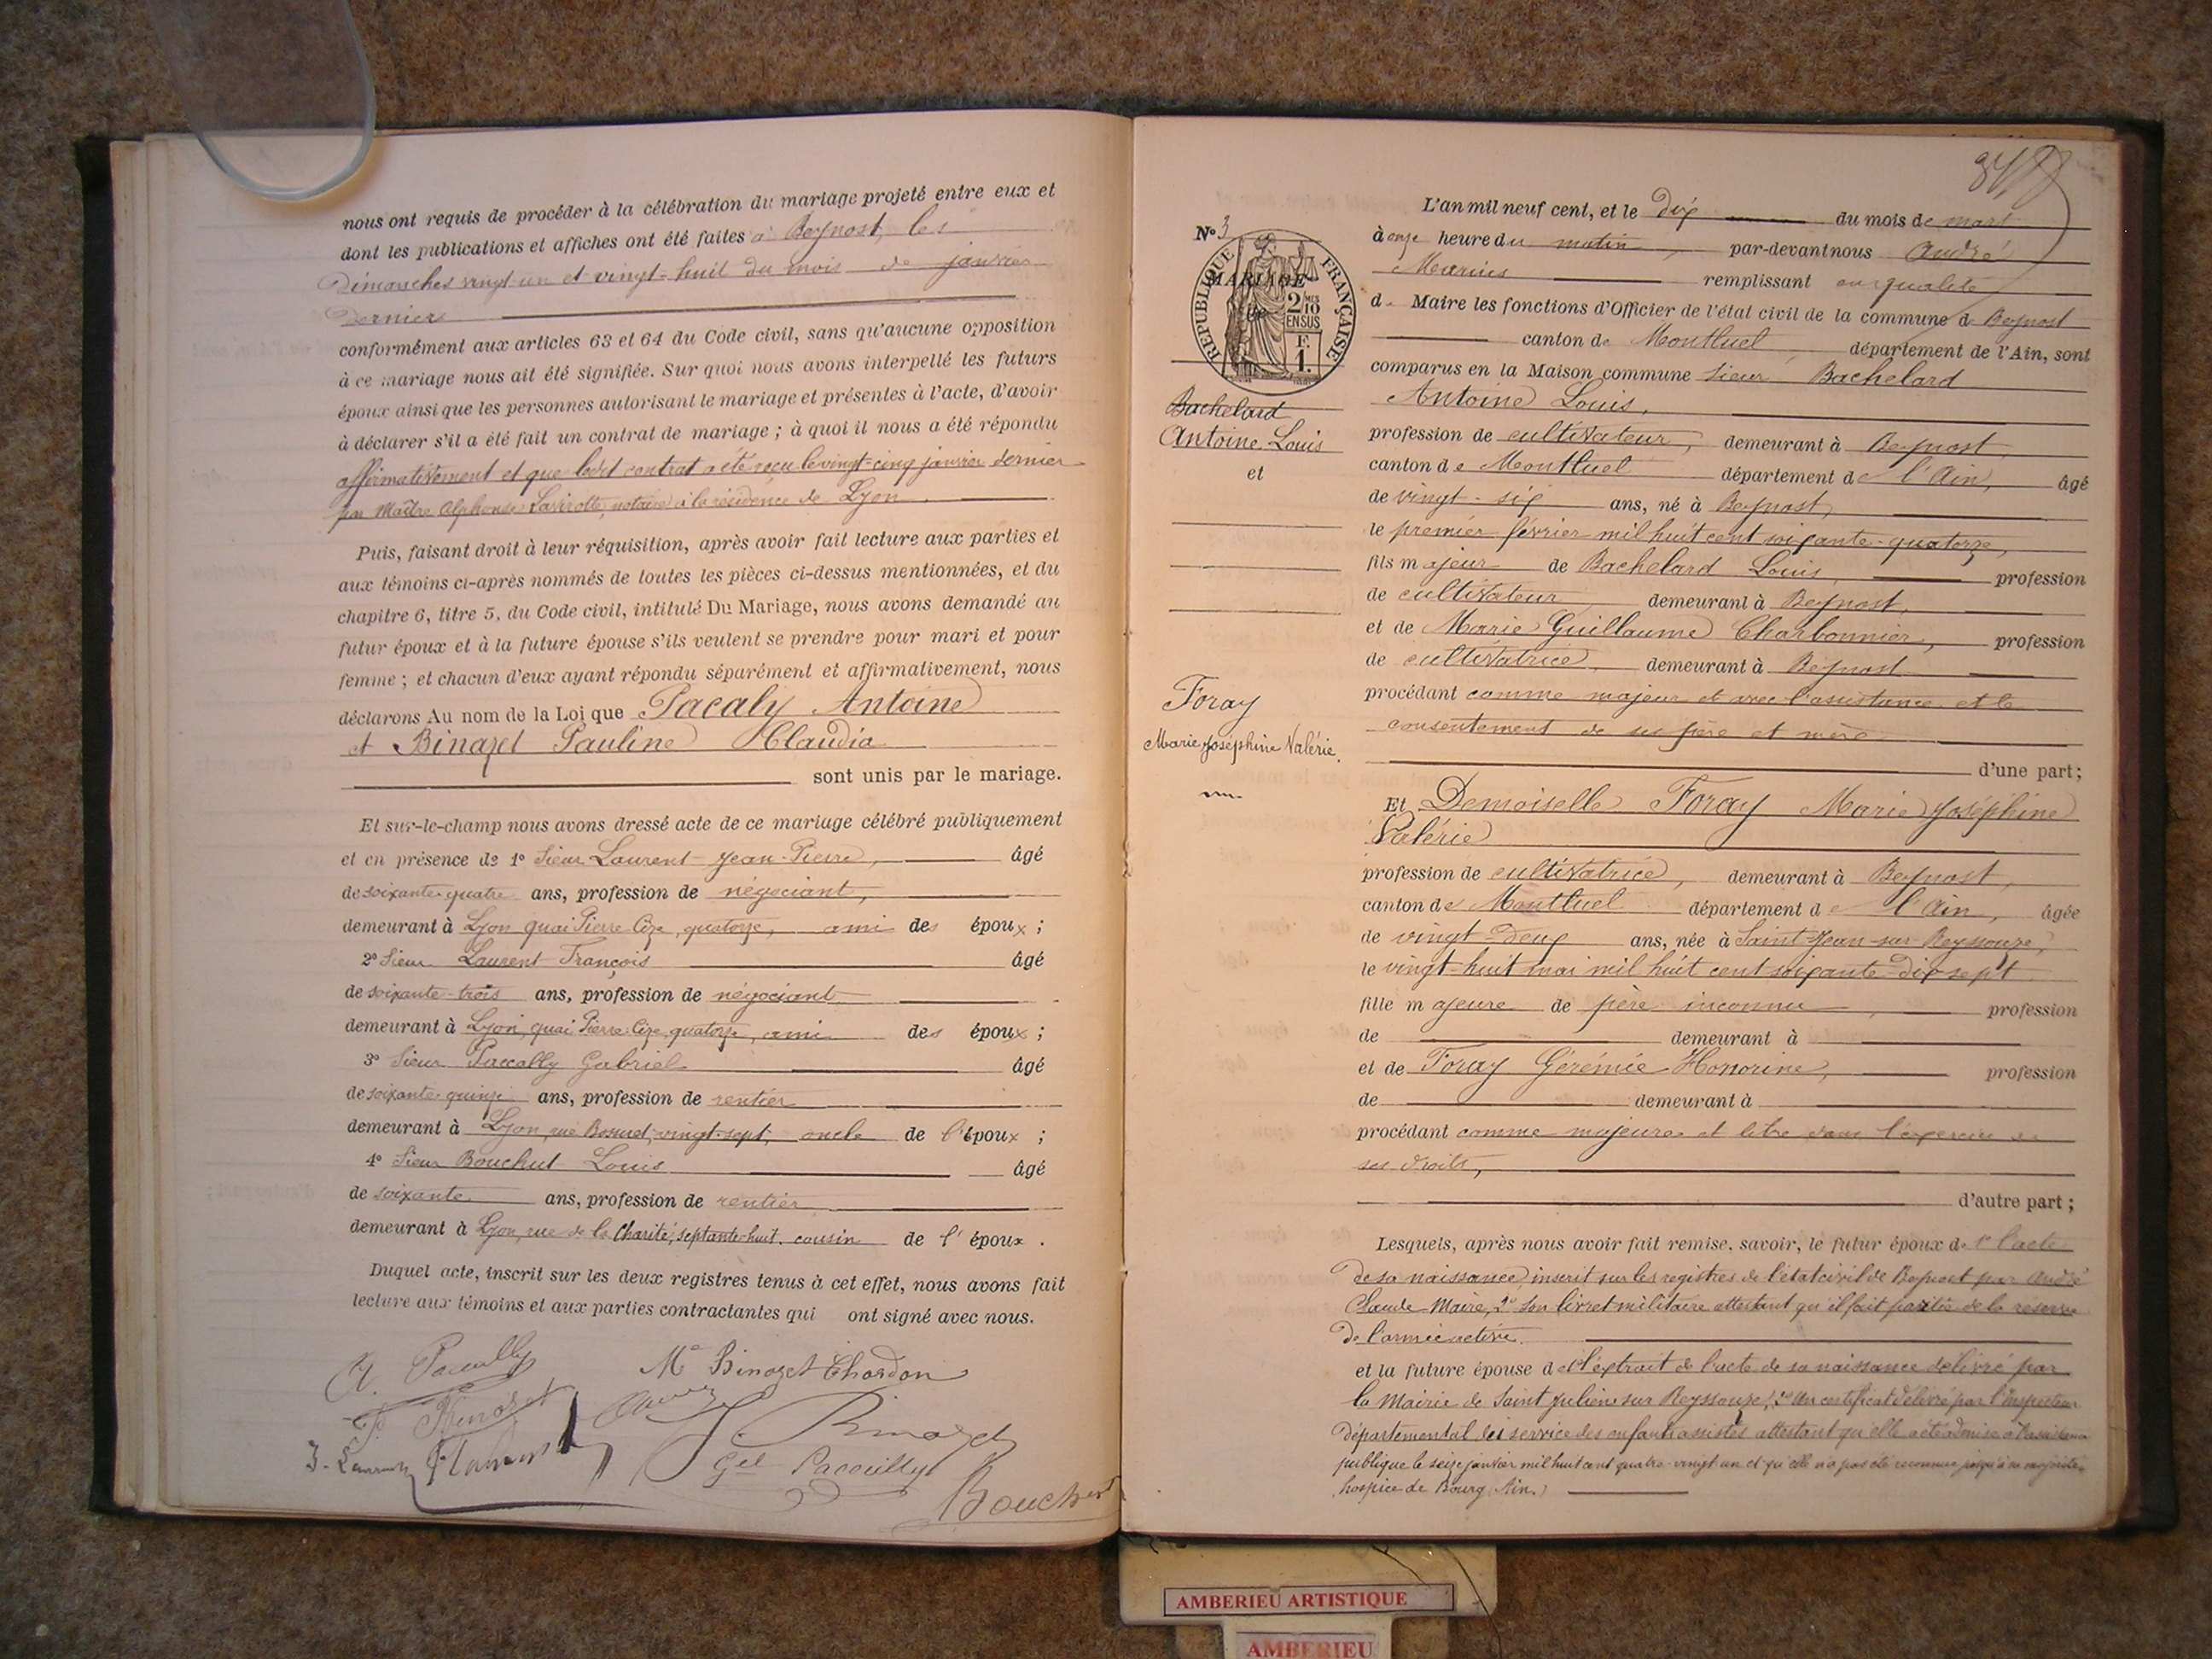 nous ont requis de procéder à la célébration du mariage projeté entre eux et
dont les publications et affiches ont été faites à Beynost, les
Dimanches vingt un et vingt-huit du mois de janvier
Dernier
conformément aux articles 63 et 64 du Code civil, sans qu'aucune opposition
à ce mariage nous ait été signifiée. Sur quoi nous avons interpellé les futurs
époux ainsi que les personnes autorisant le mariage et présentes à l'acte, d'avoir
à déclarer s'il a été fait un contrat de mariage ; à quoi il nous a été répondu
affirmativement et que ledit contrat a été reçu le vingt-cinq janvier dernier
par Maître Alphonse Lavirotte, notaire à la résidence de Lyon.
Puis, faisant droit à leur réquisition, après avoir fait lecture aux parties et
aux témoins ci-après nommés de toutes les pièces ci-dessus mentionnées, et du
chapitre 6, titre 5, du Code civil, intitulé Du Mariage, nous avons demandé au
futur époux et à la future épouse s'ils veulent se prendre pour mari et pour
femme ; et chacun d'eux ayant répondu séparément et affirmativement, nous
déclarons Au nom de la Loi que Pacaly Antoine
et Binazet Pauline Claudia
sont unis par le mariage.
Et sur-le-champ nous avons dressé acte de ce mariage célébré publiquement
et en présence de 1° Sieur Laurent Jean-Pierre, âgé
de soixante-quatre ans, profession de négociant,
demeurant à Lyon quai Pierre Cize, quatorze, ami des époux ;
2° Sieur Laurent François âgé
de soixante-trois ans, profession de négociant
demeurant à Lyon, quai Pierre Cize, quatorze, ami des époux ;
3° Sieur Paccally Gabriel âgé
de soixante-quinze ans, profession de rentier
demeurant à Lyon, rue Bossuet, vingt-sept, oncle de l'époux ;
4° Sieur Bouchut Louis âgé
de soixante ans, profession de rentier
demeurant à Lyon, rue de la Charité, septante-huit, cousin de l'époux.
Duquel acte, inscrit sur les deux registres tenus à cet effet, nous avons fait
lecture aux témoins et aux parties contractantes qui ont signé avec nous.
Binazet Chardon
Binazet
Gel Pacailly
Bouchut
N° 3
MARIAGE
de
RÉPUBLIQUE FRANÇAISE
2/10 MES
EN SUS
F.
1.
Bachelard
Antoine Louis
et
Foray
Marie Joséphine Valérie.
L'an mil neuf cent, et le dix du mois de mars
à onze heure du matin, par-devant nous André
Marius remplissant en qualité
de Maire les fonctions d'Officier de l'état civil de la commune de Beynost
canton de Montluel département de l'Ain, sont
comparus en la Maison commune Sieur Bachelard
Antoine Louis,
profession de cultivateur, demeurant à Beynost,
canton de Montluel département de l'Ain, âgé
de vingt-six ans, né à Beynost,
le premier février mil huit cent soixante-quatorze,
fils majeur de Bachelard Louis, profession
de cultivateur demeurant à Beynost,
et de Marie Guillaume Charbonnier, profession
de cultivatrice demeurant à Beynost
procédant comme majeur et avec l'assistance et le
consentement de ses père et mère
d'une part ;
Et Demoiselle Foray Marie Joséphine
Valérie
profession de cultivatrice, demeurant à Beynost,
canton de Montluel département de l'Ain, âgée
de vingt-deux ans, née à Saint-Jean-sur-Reyssouze,
le vingt-huit mai mil huit cent soixante-dix-sept
fille majeure de père inconnu, profession
de demeurant à
et de Foray Gérémie Honorine, profession
de demeurant à
procédant comme majeure et libre dans l'exercice de
ses droits,
d'autre part ;
Lesquels, après nous avoir fait remise, savoir, le futur époux de 1° l'acte
de sa naissance inscrit sur les registres de l'état civil de Beynost par André
Claude Maire, 2° son livret militaire attestant qu'il fait partie de la réserve
de l'armée active.
et la future épouse de 1° l'extrait de l'acte de sa naissance délivré par
la Mairie de Saint Julien sur Reyssouze, 2° Un certificat délivré par l'Inspecteur
départemental des service des enfants assistés attestant qu'elle a été admise à l'assistance
publique le seize janvier mil huit cent quatre-vingt un et qu'elle n'a pas été reconnue jusqu'à sa majorité
hospice de Bourg (Ain.)
AMBERIEU ARTISTIQUE
AMBERIEU